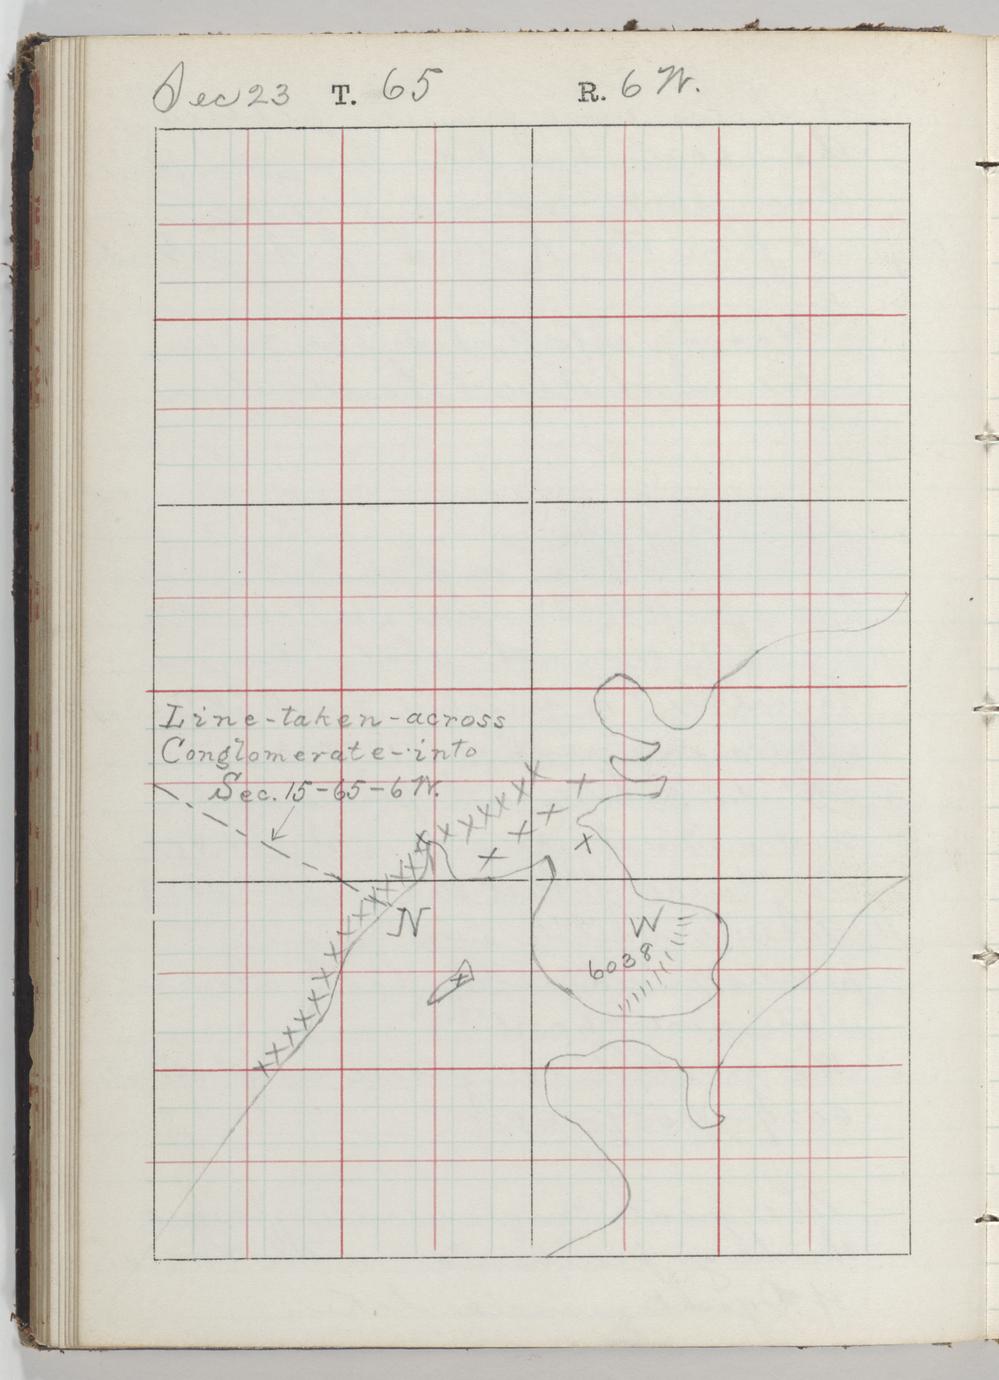 Sec 23 T. 65 R. 6 W.
Line-taken-across
Conglomerate-into
Sec. 15-65-6 W.
N
W
6038